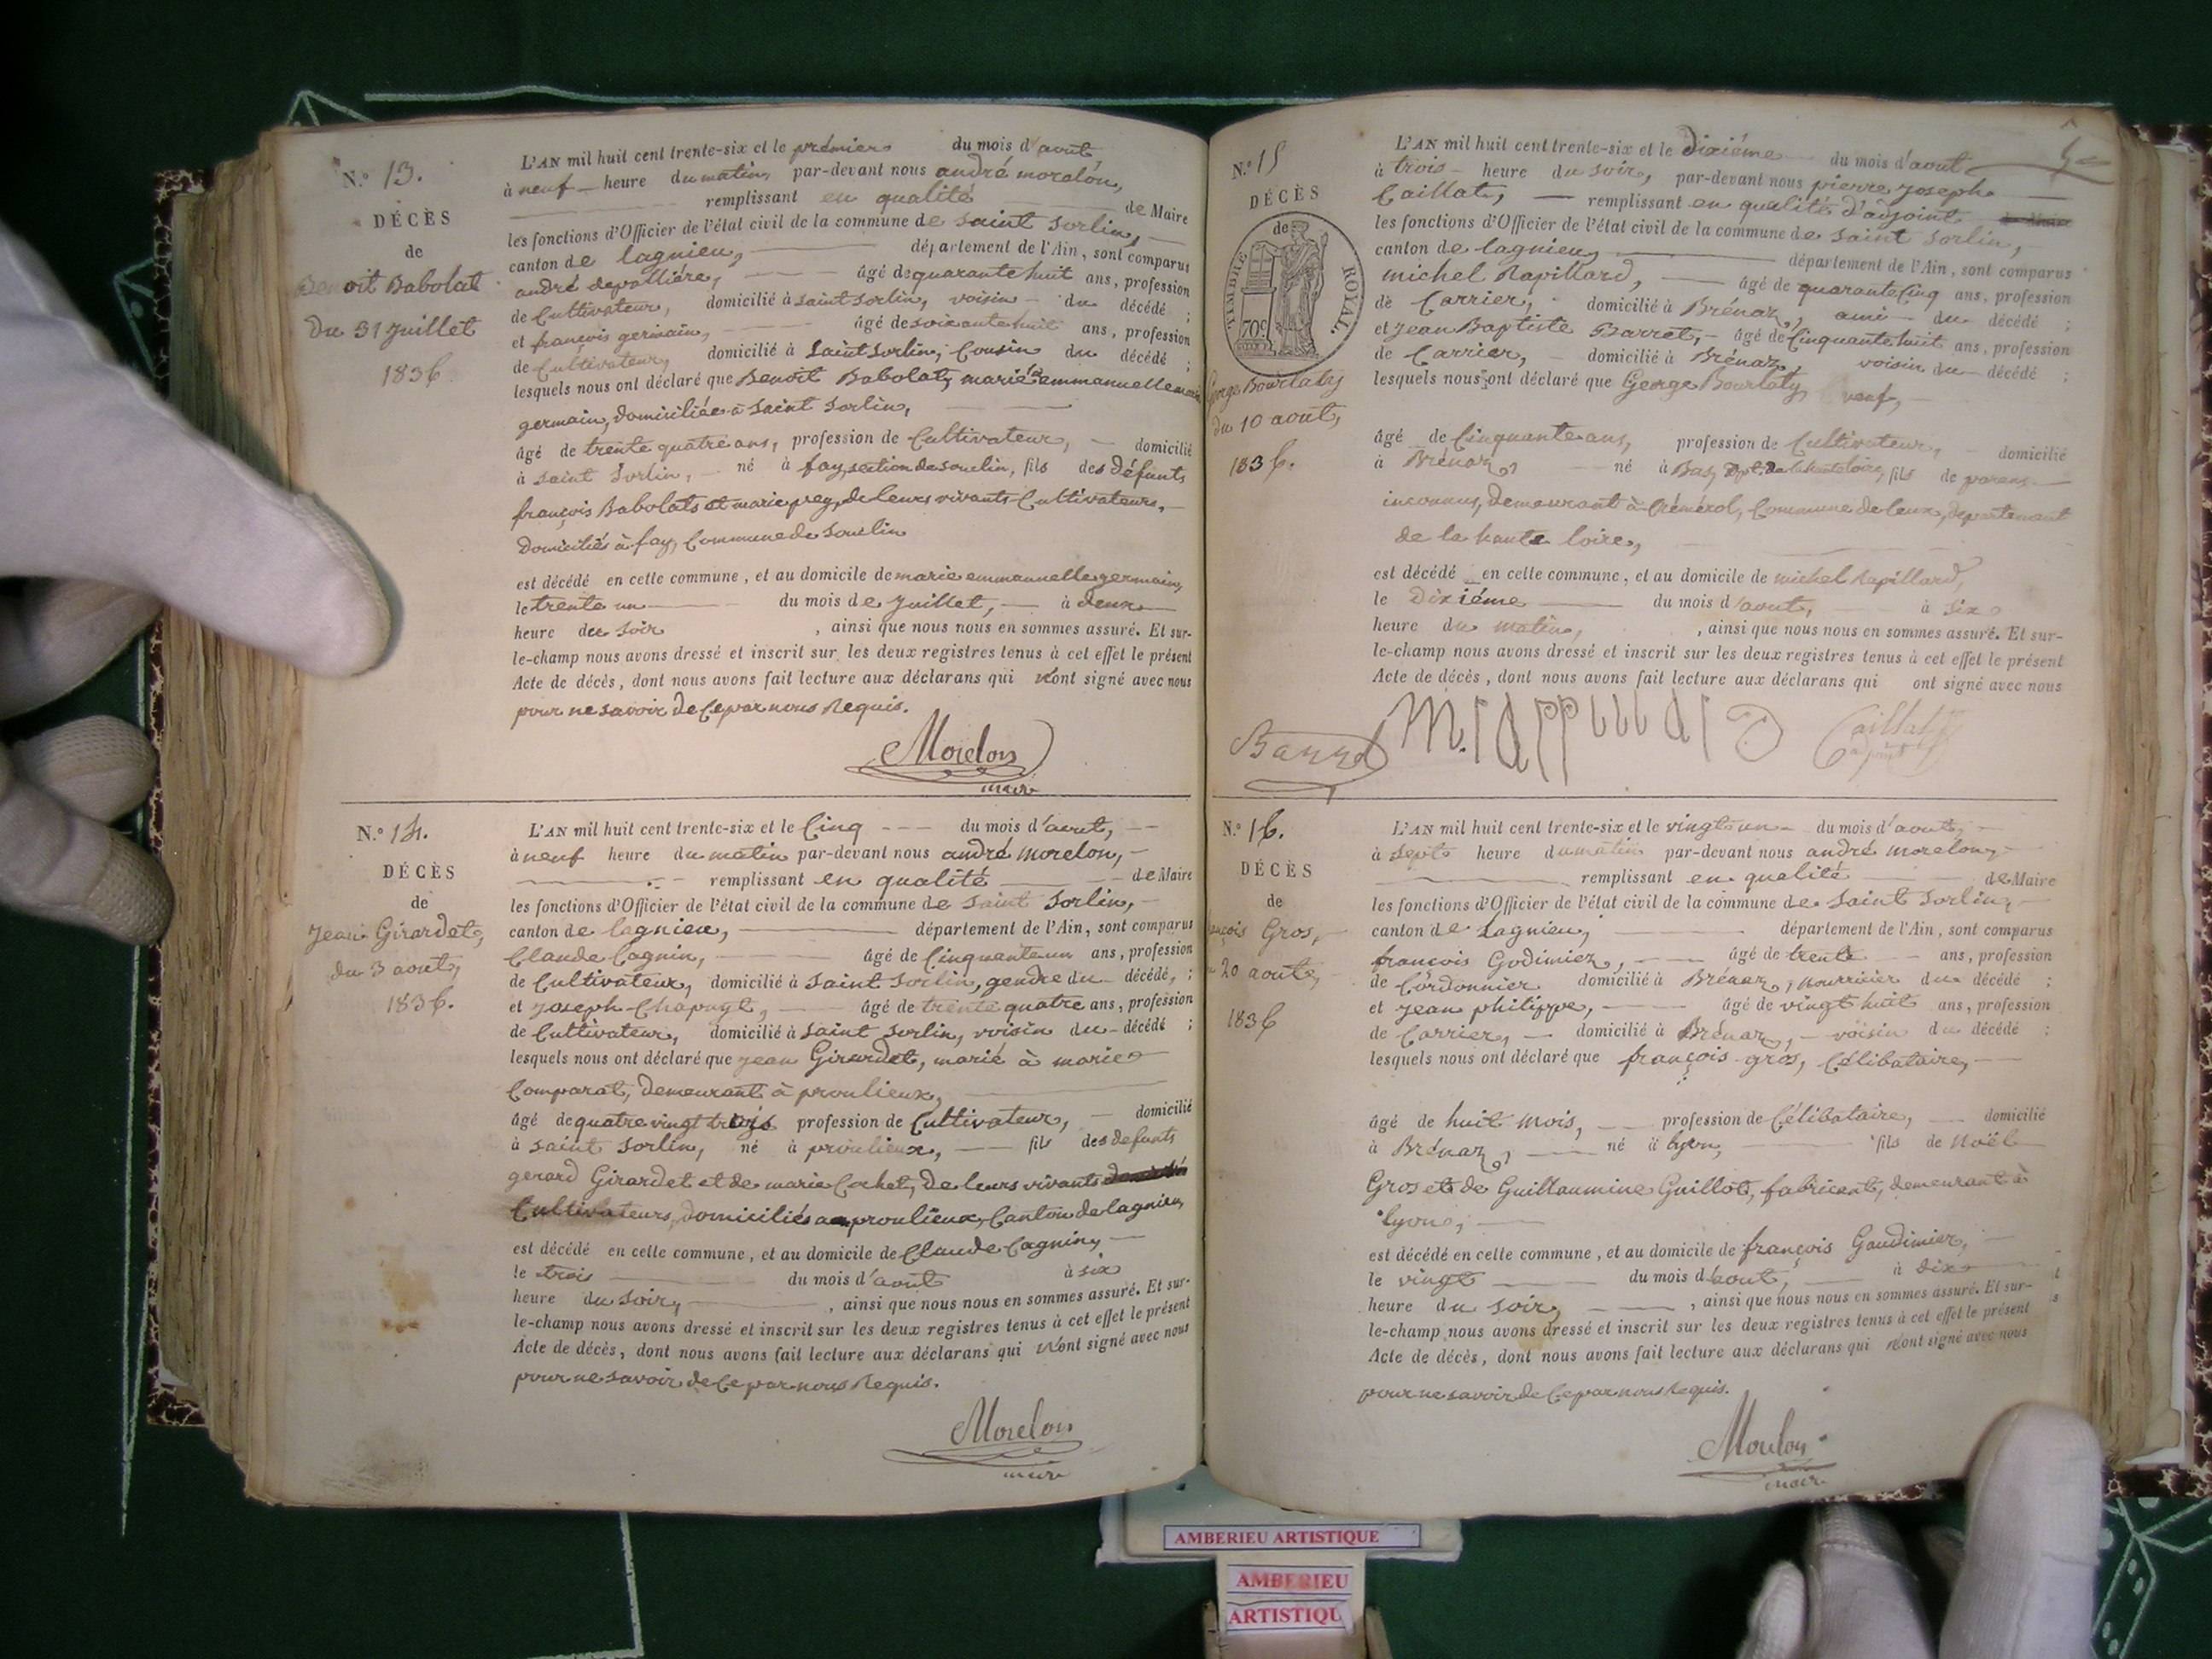 N.º 13.
DÉCÈS
de
Benoit Babolat
du 31 Juillet
1836
L'AN mil huit cent trente-six et le prémier du mois d'aout
à neuf heure du matin, par-devant nous andré morelon,
remplissant en qualité de Maire
les fonctions d'Officier de l'état civil de la commune de Saint Sorlin,
canton de lagnieu, département de l'Ain, sont comparus
andré depallière, âgé de quarante huit ans, profession
de Cultivateur, domicilié à Saint Sorlin, voisin du décédé ;
et françois germain, âgé de soixante huit ans, profession
de Cultivateur, domicilié à Saint Sorlin, Cousin du décédé ;
lesquels nous ont déclaré que Benoit Babolat, marié à emmanuelle marie
germain, domiciliée à Saint Sorlin,
âgé de trente quatre ans, profession de Cultivateur, domicilié
à Saint Sorlin, né à fay, section de souclin, fils des défunts
françois Babolat et marie prey, de leurs vivants Cultivateurs,
Domiciliés à fay, Commune de Souclin
est décédé en cette commune, et au domicile de marie emmannuelle germain,
le trente un du mois de Juillet, à deux
heure du soir, ainsi que nous nous en sommes assuré. Et sur-
le-champ nous avons dressé et inscrit sur les deux registres tenus à cet effet le présent
Acte de décès, dont nous avons fait lecture aux déclarans qui n'ont signé avec nous
pour ne savoir de Ce par nous Requis.
Morelon
maire
N.º 14.
DÉCÈS
de
Jean Girardet,
du 3 aout,
1836.
L'AN mil huit cent trente-six et le Cinq du mois d'aout,
à neuf heure du matin par-devant nous andré morelon,
remplissant en qualité de Maire
les fonctions d'Officier de l'état civil de la commune de Saint Sorlin,
canton de lagnieu, département de l'Ain, sont comparus
Claude Cagnin, âgé de Cinquante un ans, profession
de Cultivateur, domicilié à Saint Sorlin, gendre du décédé, ;
et Joseph Chapuyt, âgé de trente quatre ans, profession
de Cultivateur, domicilié à Saint Sorlin, voisin du décédé ;
lesquels nous ont déclaré que jean Girardet, marié à marie
Comparat, demeurant à proulieux,
âgé de quatre vingt trois profession de Cultivateur, domicilié
à Saint Sorlin, né à proulieux, fils des defunts
gerard Girardet et de marie Cochet, de leurs vivants
Cultivateurs, domiciliés a proulieux, Canton de lagnieu,
est décédé en cette commune, et au domicile de Claude Cagnin,
le trois du mois d'aout à six
heure du soir, ainsi que nous nous en sommes assuré. Et sur-
le-champ nous avons dressé et inscrit sur les deux registres tenus à cet effet le présent
Acte de décès, dont nous avons fait lecture aux déclarans qui n'ont signé avec nous
pour ne savoir de Ce par nous Requis.
Morelon
maire
N.º 15
DÉCÈS
de
TIMBRE ROYAL.
70c
George Bourlaty
du 10 aout,
1836.
L'AN mil huit cent trente-six et le Dixiéme du mois d'aout
à trois heure du soir, par-devant nous pierre Joseph
Caillat, remplissant en qualité d'adjoint
les fonctions d'Officier de l'état civil de la commune de Saint Sorlin,
canton de lagnieu, département de l'Ain, sont comparus
michel Rapillard, âgé de quarante Cinq ans, profession
de Carrier, domicilié à Brénaz, ami du décédé ;
et Jean Baptiste Barret, âgé de Cinquante huit ans, profession
de Carrier, domicilié à Brénaz, voisin du décédé ;
lesquels nous ont déclaré que George Bourlaty, veuf,
âgé de Cinquante ans, profession de Cultivateur, domicilié
à Brénaz, né à Bas, Dpt. De la haute loire, fils de parens
inconnus, demeurant à Crémérol, Commune de leux, département
de la haute loire,
est décédé en cette commune, et au domicile de michel Rapillard,
le Dixiéme du mois d'aout, à six
heure du matin, ainsi que nous nous en sommes assuré. Et sur-
le-champ nous avons dressé et inscrit sur les deux registres tenus à cet effet le présent
Acte de décès, dont nous avons fait lecture aux déclarans qui ont signé avec nous
Barret Caillat
N.º 16.
DÉCÈS
de
ançois Gros,
20 aout,
1836
L'AN mil huit cent trente-six et le vingt un du mois d'aout,
à sept heure du matin par-devant nous andré morelon,
remplissant en qualité de Maire
les fonctions d'Officier de l'état civil de la commune de Saint Sorlin,
canton de Lagnieu, département de l'Ain, sont comparus
françois Godimier, âgé de trente ans, profession
de Cordonnier domicilié à Brénaz, nourricier du décédé ;
et Jean philippe, âgé de vingt huit ans, profession
de Carrier, domicilié à Brénaz, voisin du décédé ;
lesquels nous ont déclaré que françois gros, Célibataire,
âgé de huit mois, profession de Célibataire, domicilié
à Brénaz, né à lyon, fils de Noël
Gros et de Guillaumine Guillot, fabricant, demeurant à
lyon,
est décédé en cette commune, et au domicile de françois Gaudimier,
le vingt du mois d'aout, à dix
heure du soir, ainsi que nous nous en sommes assuré. Et sur-
le-champ nous avons dressé et inscrit sur les deux registres tenus à cet effet le présent
Acte de décès, dont nous avons fait lecture aux déclarans qui n'ont signé avec nous
pour ne savoir de Ce par nous Requis.
Morelon
maire
AMBERIEU ARTISTIQUE
AMBERIEU
ARTISTIQU